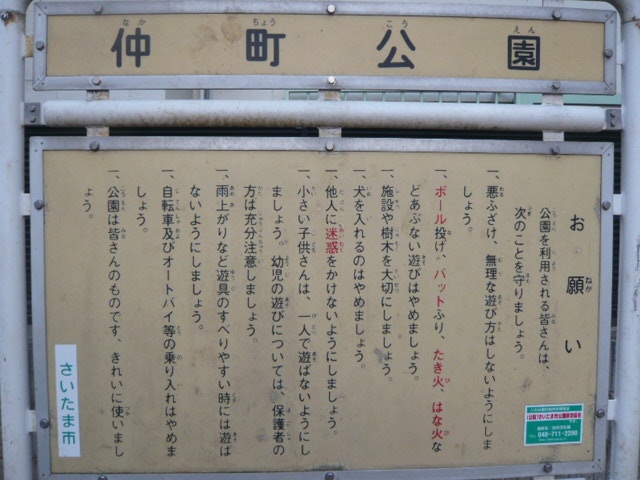 仲町公園
お願い
公園を利用される皆さんは、
次のことを守りましょう。
一、悪ふざけ、無理な遊び方はしないようにしま
しょう。
一、ボール投げ、バットふり、たき火、はな火な
どあぶない遊びはやめましょう。
一、施設や樹木を大切にしましょう。
一、犬を入れるのはやめましょう。
一、他人に迷惑をかけないようにしましょう。
一、小さい子供さんは、一人で遊ばないようにし
ましょう。幼児の遊びについては、保護者の
方は充分注意しましょう。
一、雨上がりなど遊具のすべりやすい時には遊ば
ないようにしましょう。
一、自転車及びオートバイ等の乗り入れはやめま
しょう。
一、公園は皆さんのものです、きれいに使いまし
ょう。
さいたま市
TEL 048-711-2290